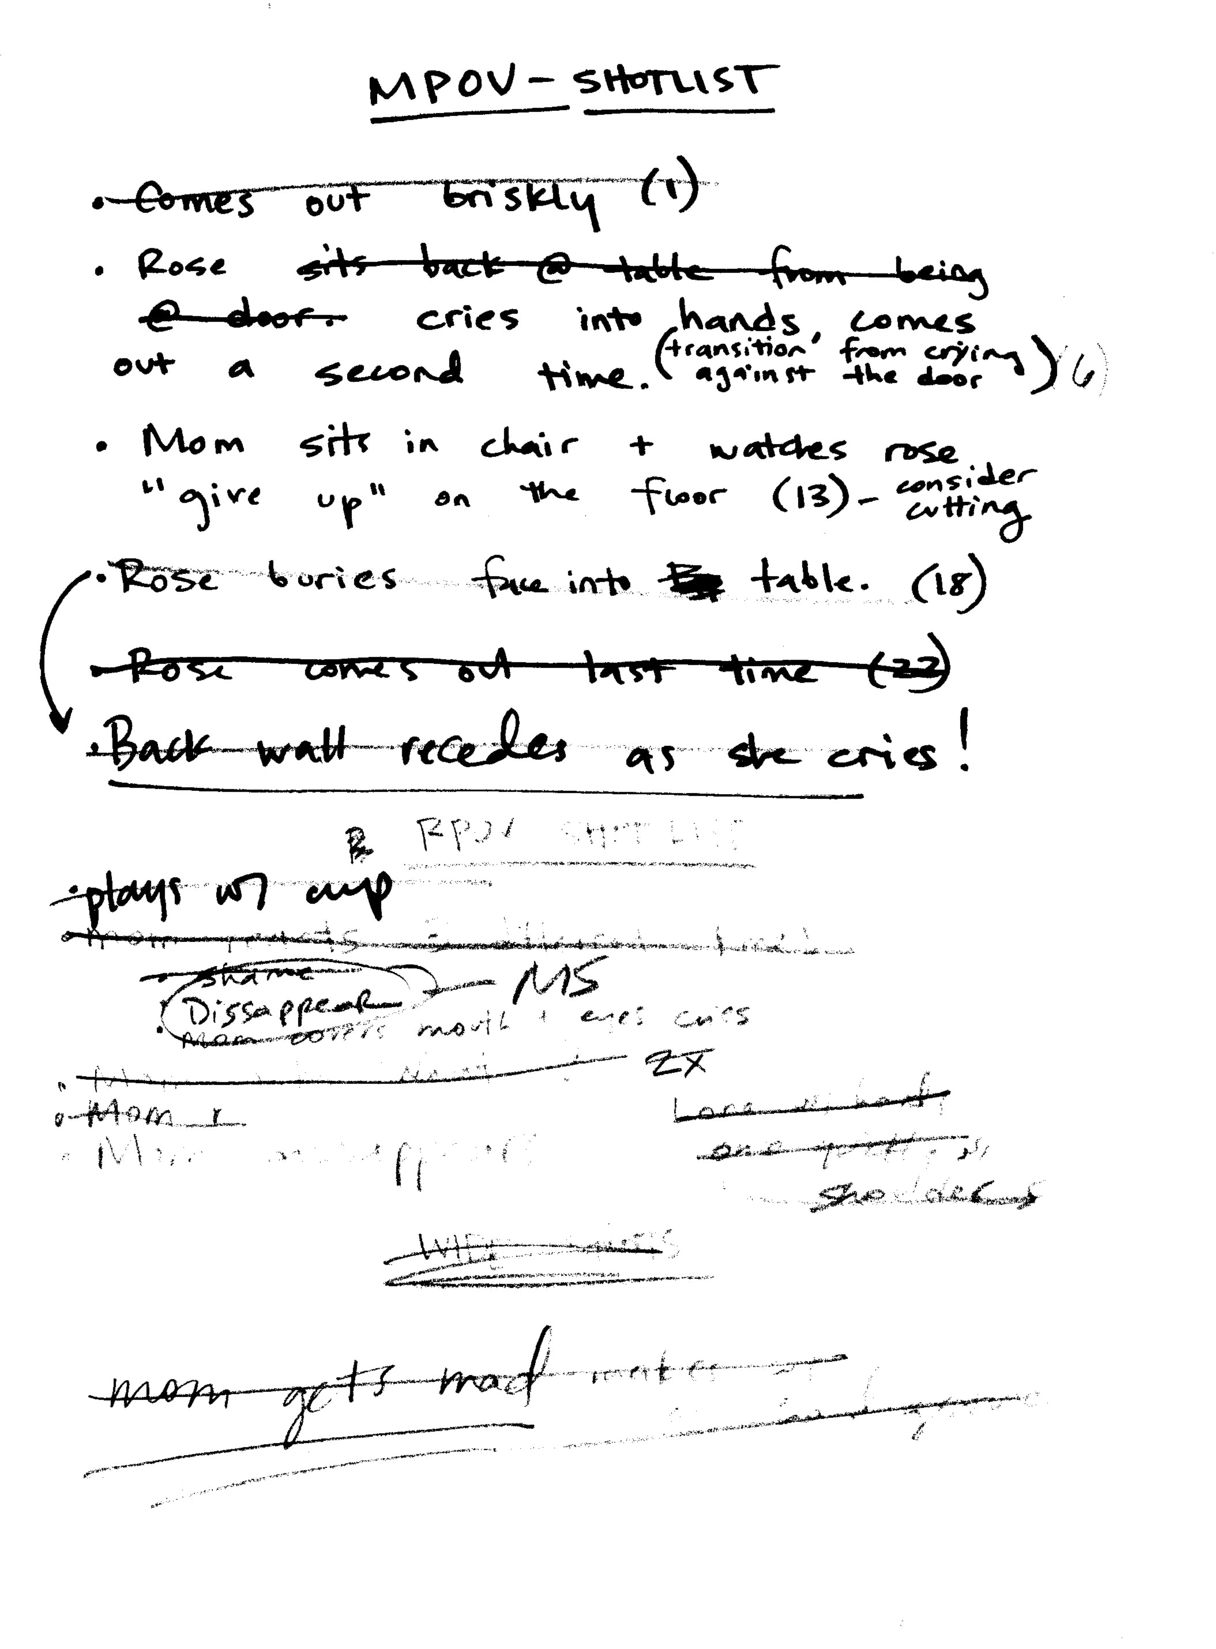 MPOV - SHOTLIST
• Comes out briskly (1)
• Rose sits back @ table from being
@ door. cries into hands, comes
out a second time. (transition from crying
against the door) (6)
• Mom sits in chair + watches rose
"give up" on the floor (13) - consider
cutting
• Rose buries face into table. (18)
• Rose comes out last time (22)
• Back wall recedes as she cries!
RPOV SHOT LIST
• plays w/ cup
• Mom
shame
Dissappear - MS
• Mom covers mouth + eyes cries
2x
• Mom
• Mom
shoulders
mom gets mad